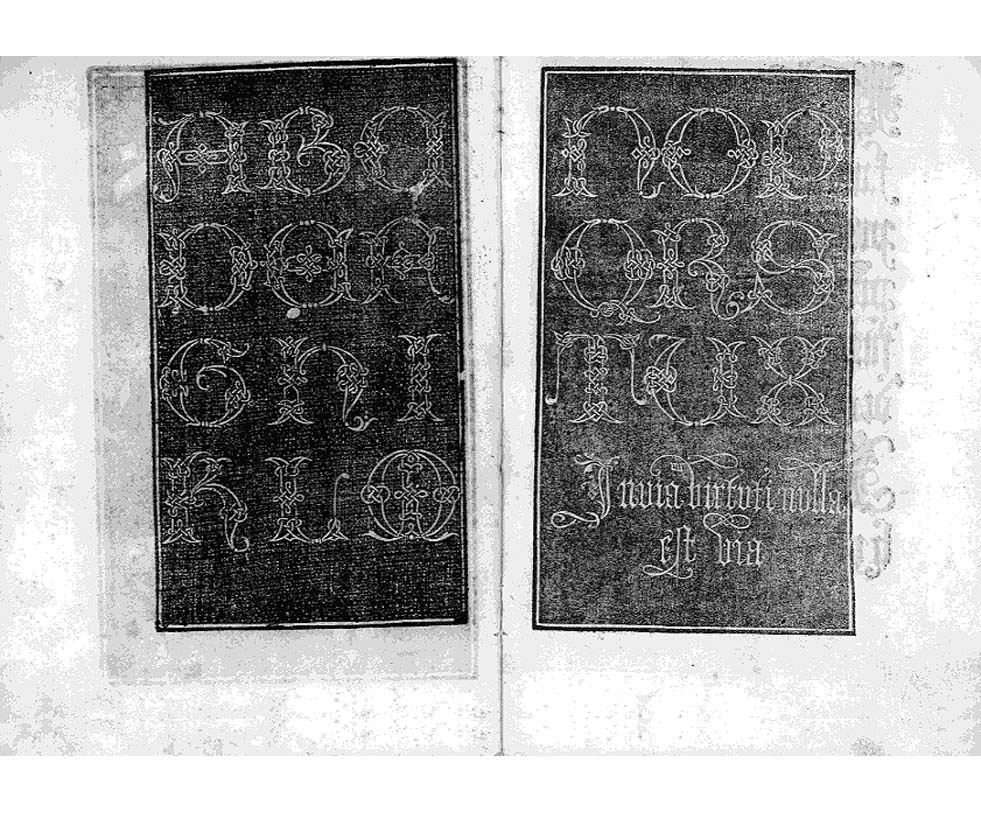 A B C
D E F
G H I
K L M
N O P
Q R S
T V X
Inuia virtuti nulla
est via